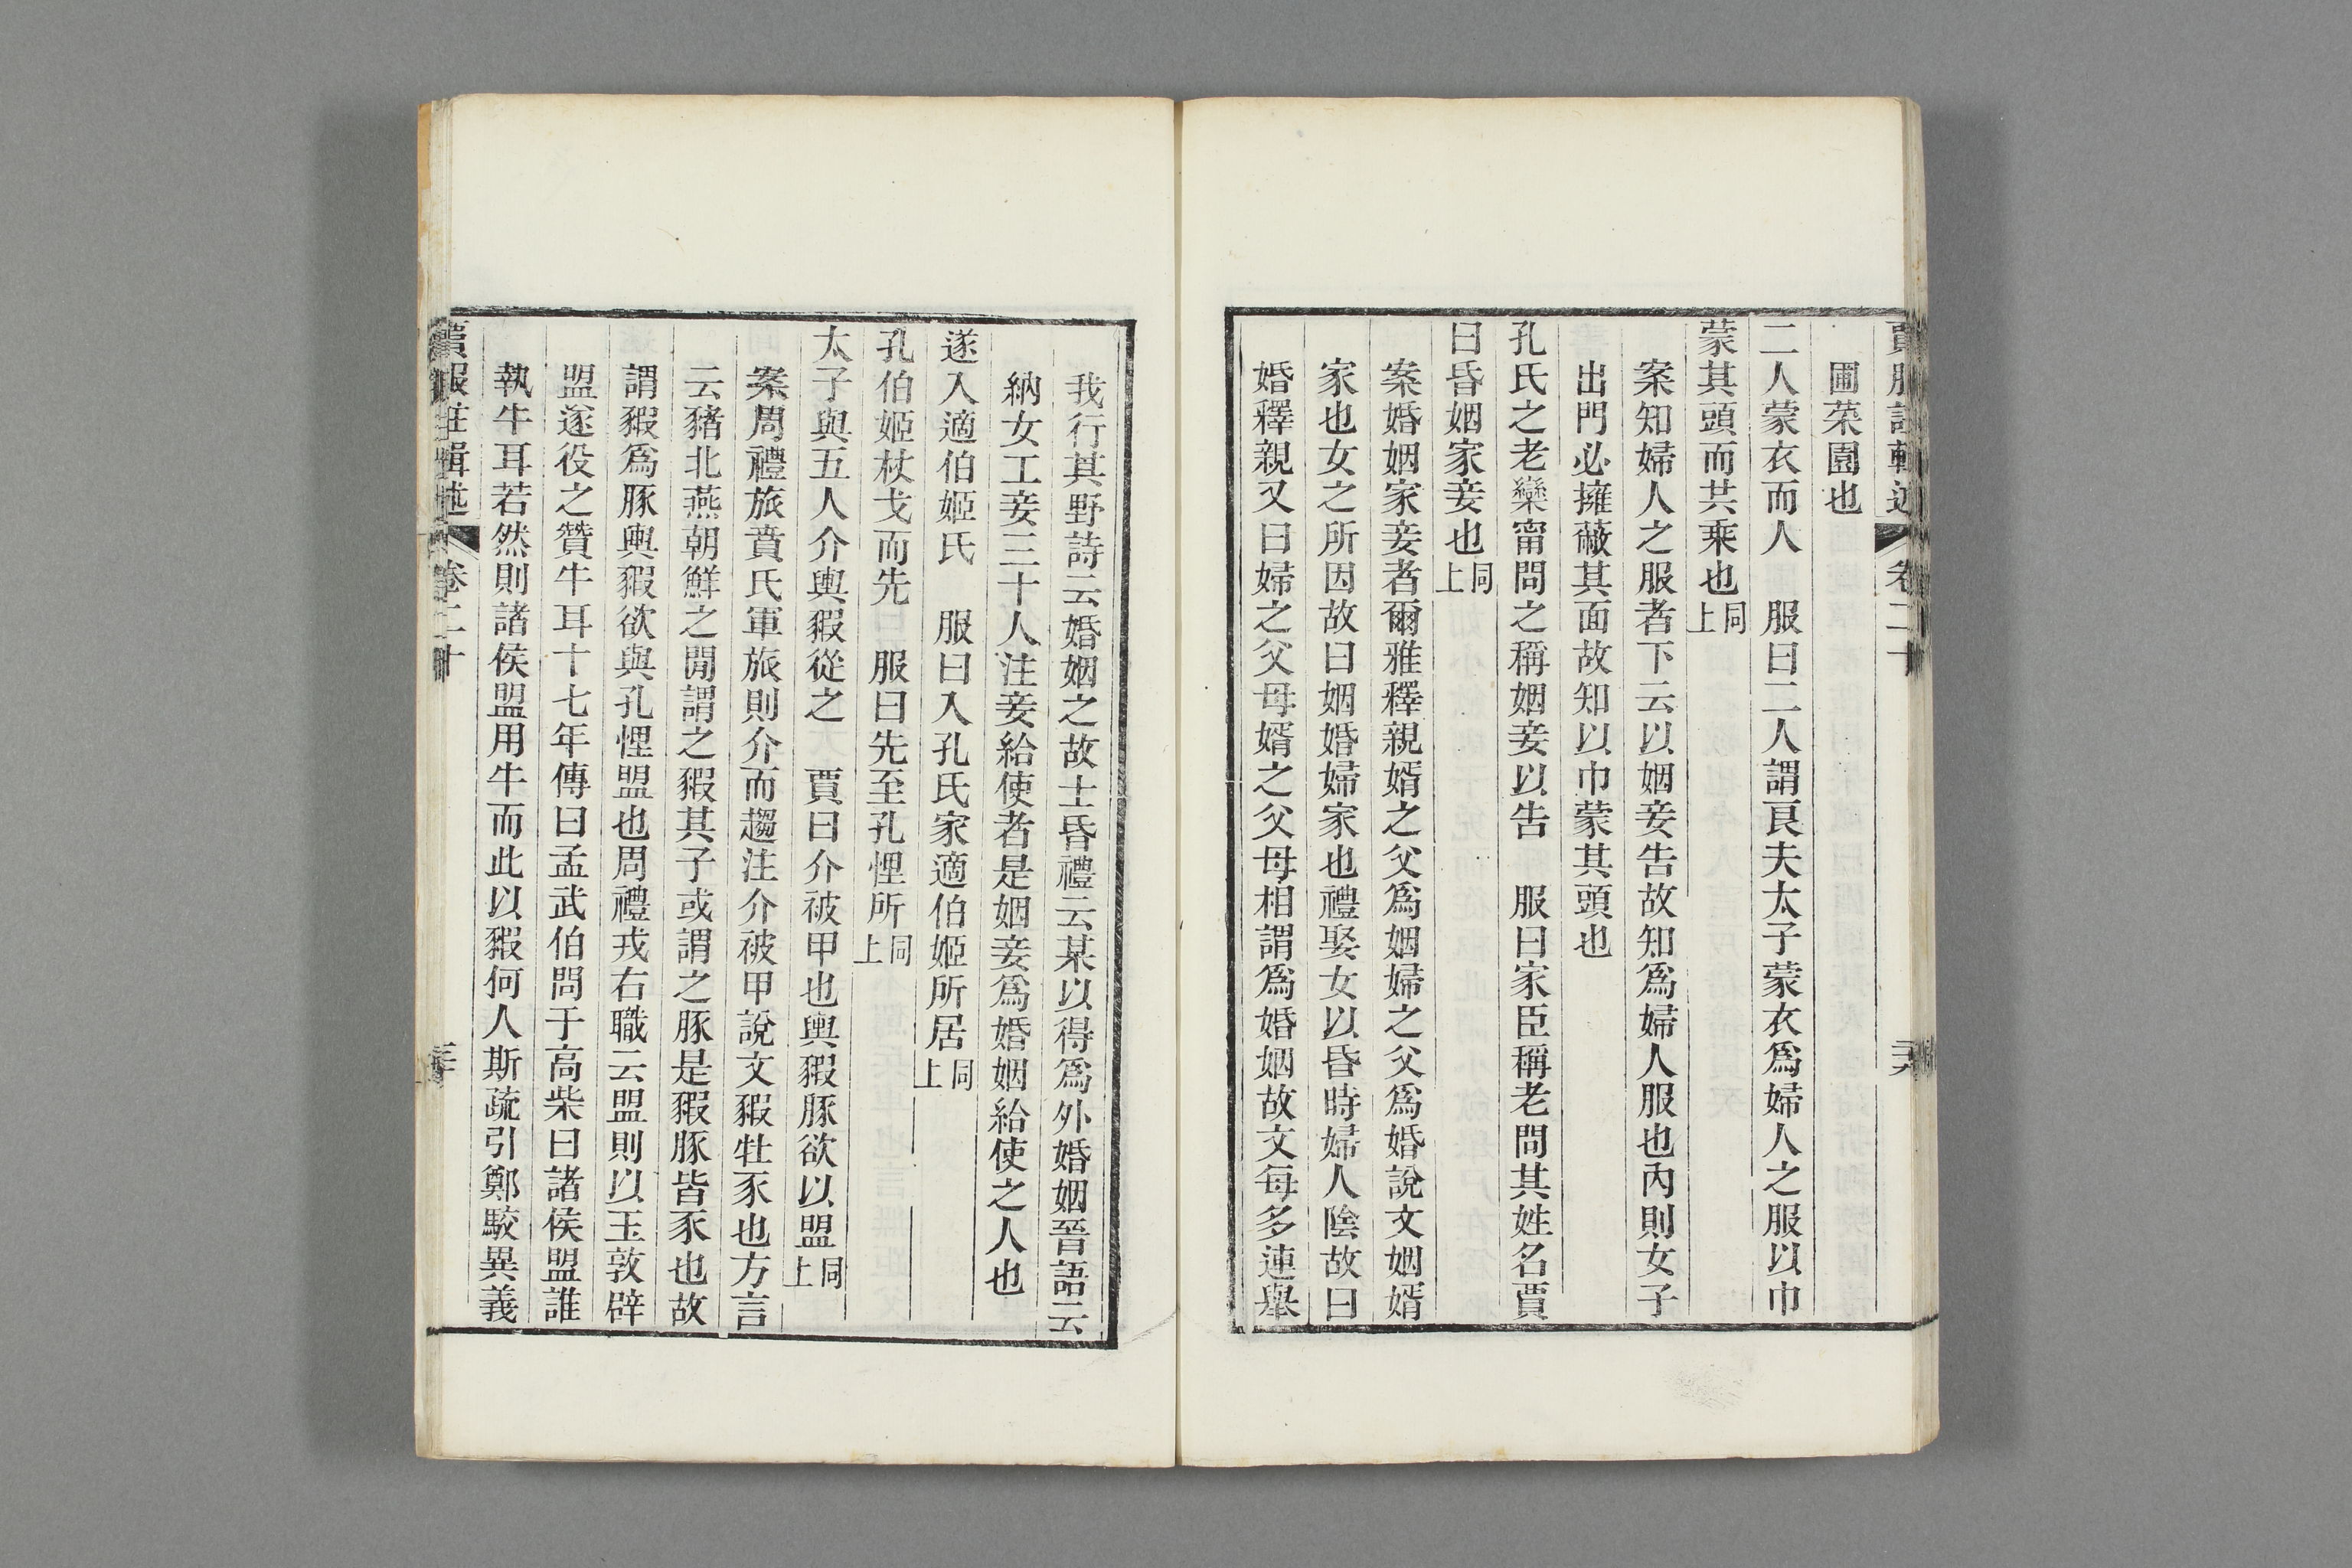 賈服註輯述 卷二十
圃菜園也
二人蒙衣而人 服曰二人謂良夫太子蒙衣爲婦人之服以巾
蒙其頭而共乘也同上
案知婦人之服者下云以姻妾告故知爲婦人服也內則女子
出門必擁蔽其面故知以巾蒙其頭也
孔氏之老欒甯問之稱姻妾以告 服曰家臣稱老問其姓名賈
曰昏姻家妾也同上
案婚姻家妾者爾雅釋親婿之父爲姻婦之父爲婚說文姻婿
家也女之所因故曰姻婚婦家也禮娶女以昏時婦人陰故曰
婚釋親又曰婦之父母婿之父母相謂爲婚姻故文每多連舉
我行其野詩云婚姻之故士昏禮云某以得爲外婚姻晉語云
納女工妾三十人注妾給使者是姻妾爲婚姻給使之人也
遂入適伯姬氏 服曰入孔氏家適伯姬所居同上
孔伯姬杖戈而先 服曰先至孔悝所同上
太子與五人介輿豭從之 賈曰介被甲也輿豭豚欲以盟同上
案周禮旅賁氏軍旅則介而趨注介被甲說文豭牡豕也方言
云豬北燕朝鮮之閒謂之豭其子或謂之豚是豭豚皆豕也故
謂豭爲豚輿豭欲與孔悝盟也周禮戎右職云盟則以玉敦辟
盟遂役之贊牛耳十七年傳曰孟武伯問于高柴曰諸侯盟誰
執牛耳若然則諸侯盟用牛而此以豭何人斯疏引鄭駮異義
賈服註輯述 卷二十